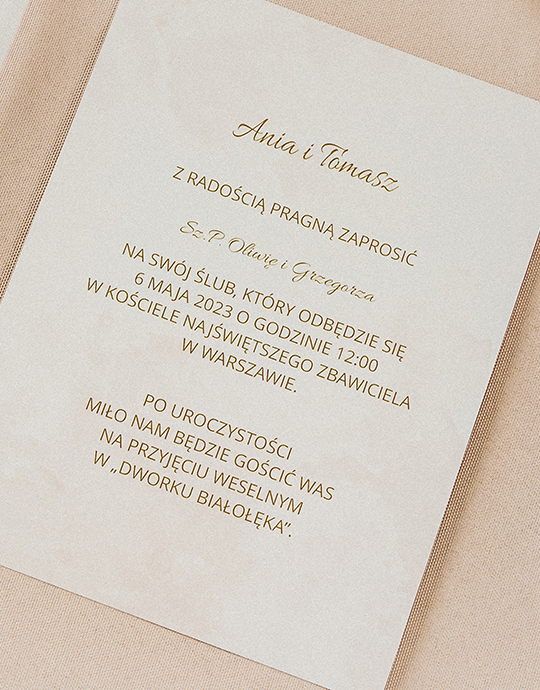 Ania i Tomasz
Z RADOŚCIĄ PRAGNĄ ZAPROSIĆ
Sz.P. Oliwię i Grzegorza
NA SWÓJ ŚLUB, KTÓRY ODBĘDZIE SIĘ
6 MAJA 2023 O GODZINIE 12:00
W KOŚCIELE NAJŚWIĘTSZEGO ZBAWICIELA
W WARSZAWIE.
PO UROCZYSTOŚCI
MIŁO NAM BĘDZIE GOŚCIĆ WAS
NA PRZYJĘCIU WESELNYM
W „DWORKU BIAŁOŁĘKA”.